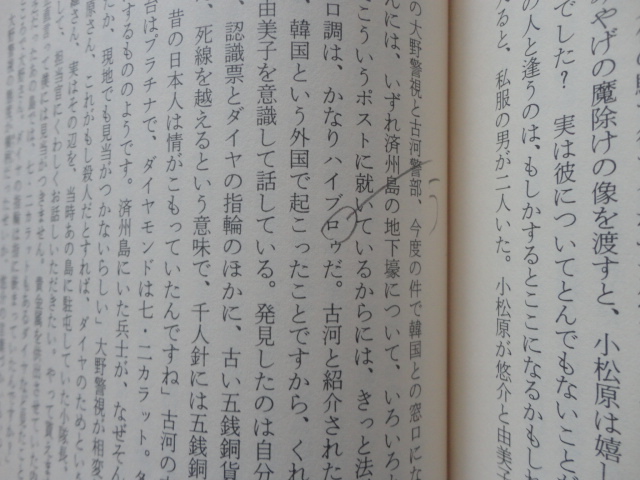 みやげの魔除けの像を渡すと、小松原は嬉し
でした？　実は彼についてとんでもないことが
の人と逢うのは、もしかするとここになるかもした
えると、私服の男が二人いた。小松原が悠介と由美子
の大野警視と古河警部、今度の件で韓国との窓口にな
んには、いずれ済州島の地下壕について、いろいろと
こういうポストに就いているからには、きっと法
口調は、かなりハイブロゥだ。古河と紹介された
、韓国という外国で起こったことですから、くれ
由美子を意識して話している。発見したのは自分
、認識票とダイヤの指輪のほかに、古い五銭銅貨
、死線を越えるという意味で、千人針には五銭銅
昔の日本人は情がこもっていたんですね」古河の
台はプラチナで、ダイヤモンドは七・二カラット。
するもののようです。済州島にいた兵士が、なぜそん
たか、現地でも見当がつかないらしい」大野警視が相変
原さん、これがもし殺人だとすれば、ダイヤのためという
さん、実はその辺を、当時あの島に駐屯していた小隊長
して、担当官にくわしくお話しいただきたい。やって貰えま
う